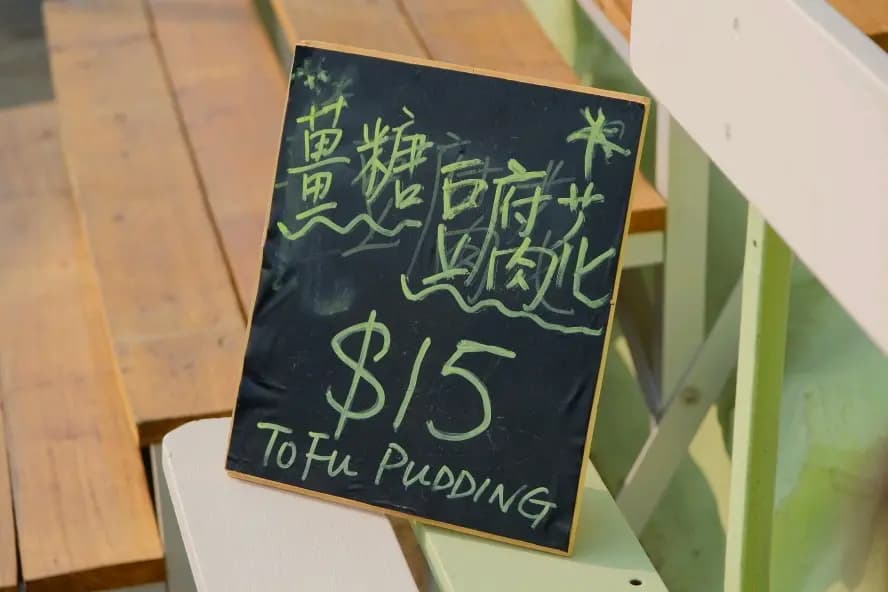 薑糖
豆腐花
$15
TOFU PUDDING